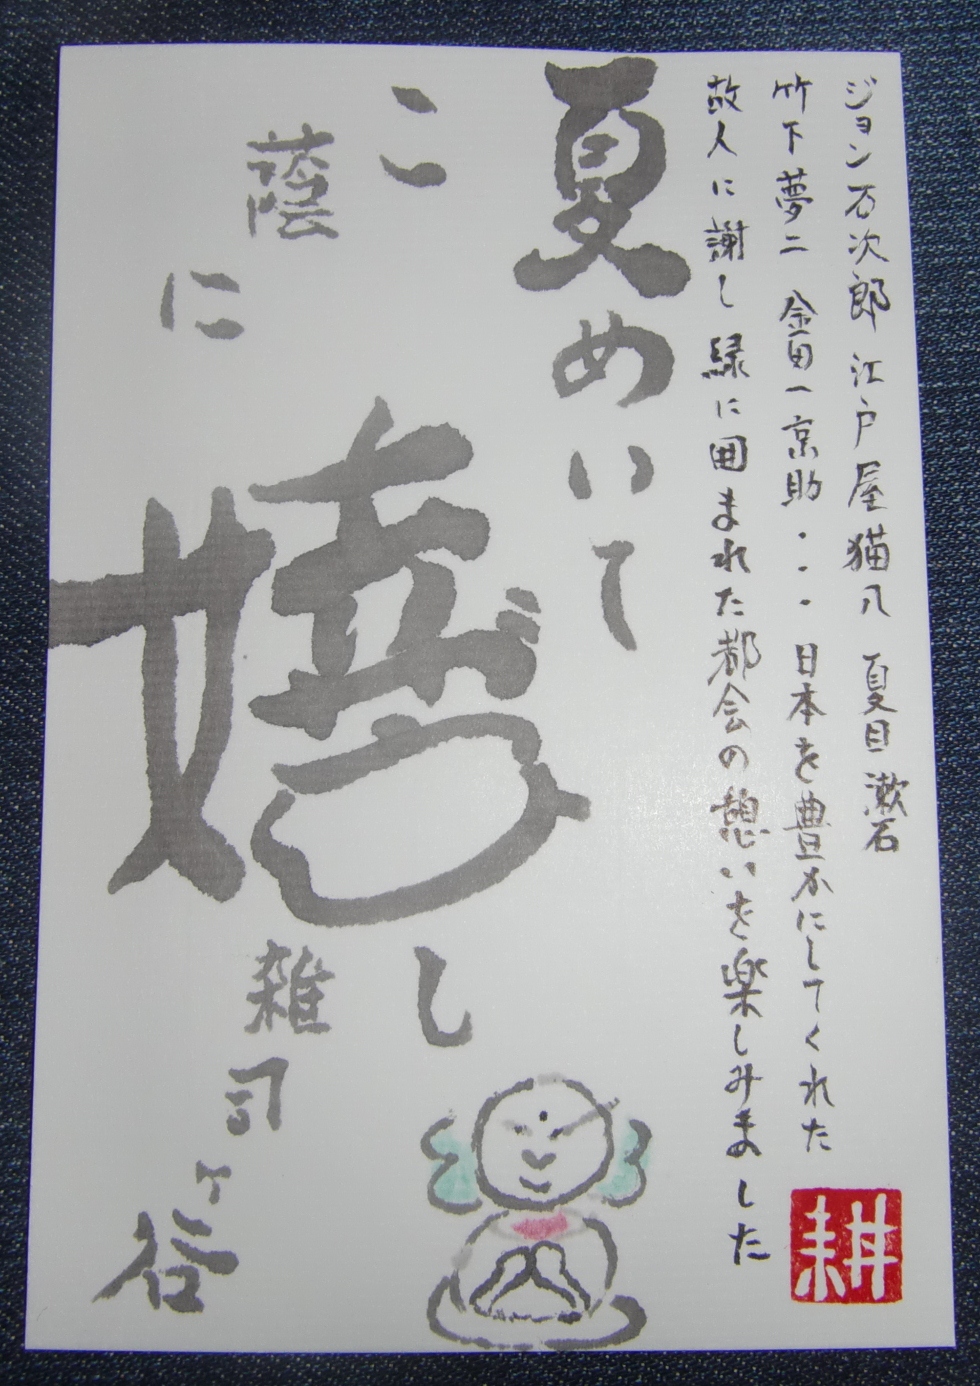 ジョン万次郎 江戸屋猫八 夏目漱石
竹下夢二 金田一京助・・・日本を豊かにしてくれた
故人に謝し緑に囲まれた都会の憩いを楽しみました
夏めいて
こ
嬉し
蔭に
雑司ヶ谷
耕